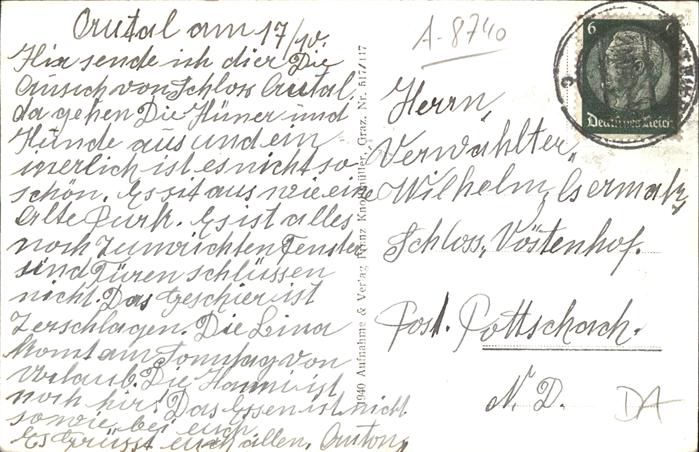 Arutal am 17/10.
Hir sende ich dier Die
Ansich von Schloss Arutal,
da gehen Die Hüner und
Hunde aus und ein
inerlich ist es nicht so
schön. Es sit aus wie eine
Alte Burk. Es ist alles
noch zum richten Fenster
sind Türen schlüssen
nicht. Das Geschier ist
Zerschlagen. Die Lina
komt am Sonntag von
Urlaub. Die Hanni ist
noch hir. Das Essen ist nicht
sowie bei euch.
Es Grüsst euch allen, Anton
1940 Aufnahme & Verlag Heinz Knollmüller, Graz. Nr. 517/117
A-8740
6 6
Deutsches Reich
Herrn,
Verwahlter,
Wilhelm,
Schloss, Vöstenhof.
Post. Pottschach.
N. D.
DA